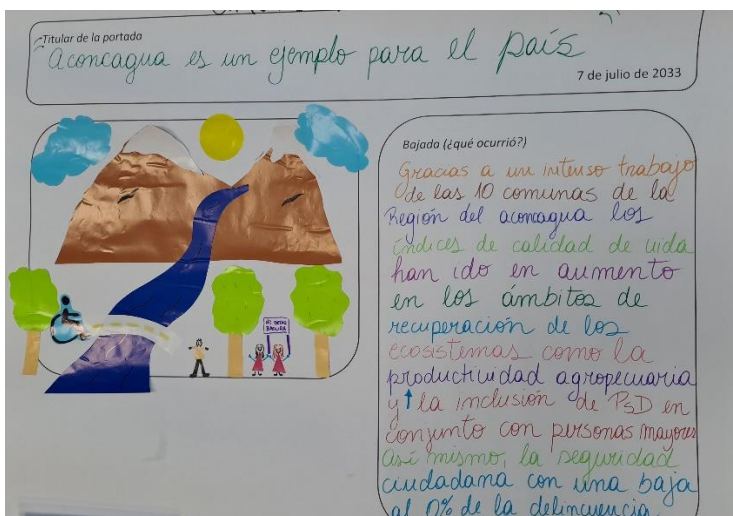 Titular de la portada
"Aconcagua es un ejemplo para el país"
7 de julio de 2033
NO BOTAR
BASURA
Bajada (¿qué ocurrió?)
Gracias a un intenso trabajo
de las 10 comunas de la
Región del aconcagua los
índices de calidad de vida
han ido en aumento
en los ámbitos de
recuperación de los
ecosistemas como la
productividad agropecuaria
y ↑ la inclusión de PsD en
conjunto con personas mayores
así mismo, la seguridad
ciudadana con una baja
al 0% de la delincuencia.